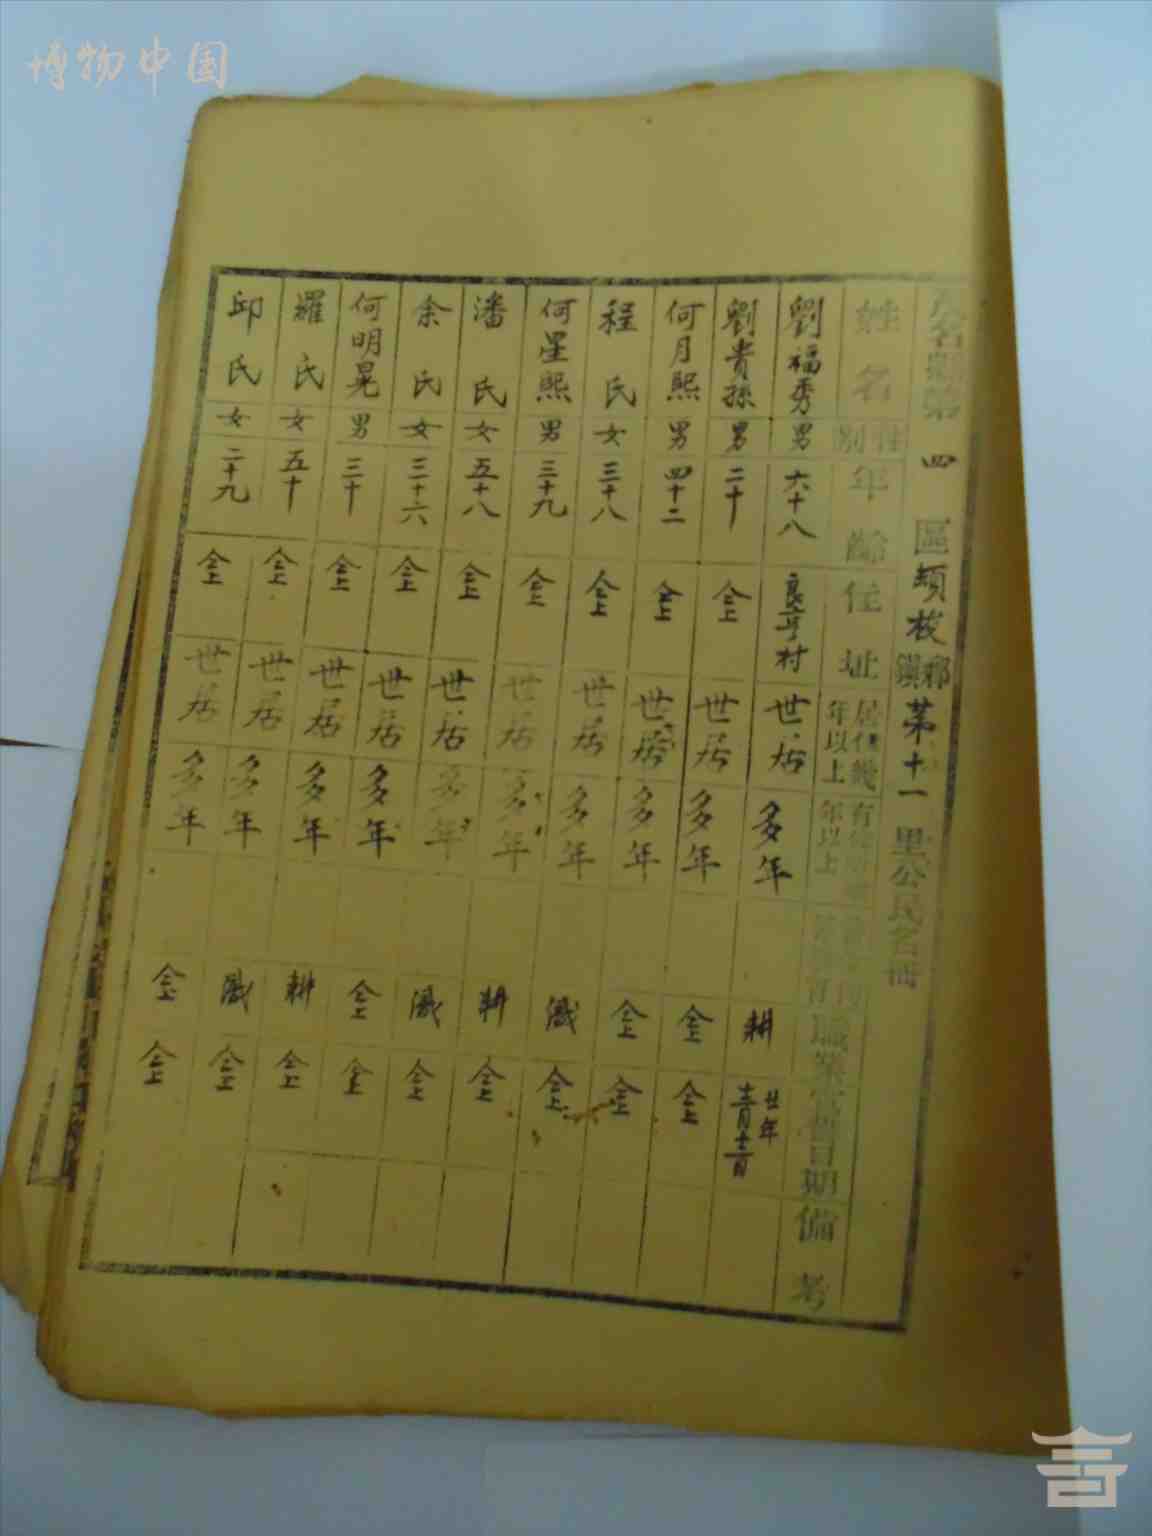 博物中国
名
四
區
頭
梭
鄉
鎮
第十一
里公民名冊
姓名
性別
年齡
住址
居住幾年以上
有
年以上
職業
宣誓日期
備考
劉福秀 男 六十八 良亨村 世居 多年 耕 廿年
劉貴孫 男 二十 仝上 世居 多年 仝上 仝上
何月熙 男 四十二 仝上 世居 多年 仝上 仝上
程氏 女 三十八 仝上 世居 多年 仝上
何星熙 男 三十九 仝上 世居 多年 耕 仝上
潘氏 女 五十八 仝上 世居 多年 仝上
余氏 女 三十六 仝上 世居 多年 仝上 仝上
何明晃 男 三十 仝上 世居 多年 耕 仝上
羅氏 女 五十 仝上 世居 多年 仝上
邱氏 女 二十九 仝上 世居 多年 仝上 仝上